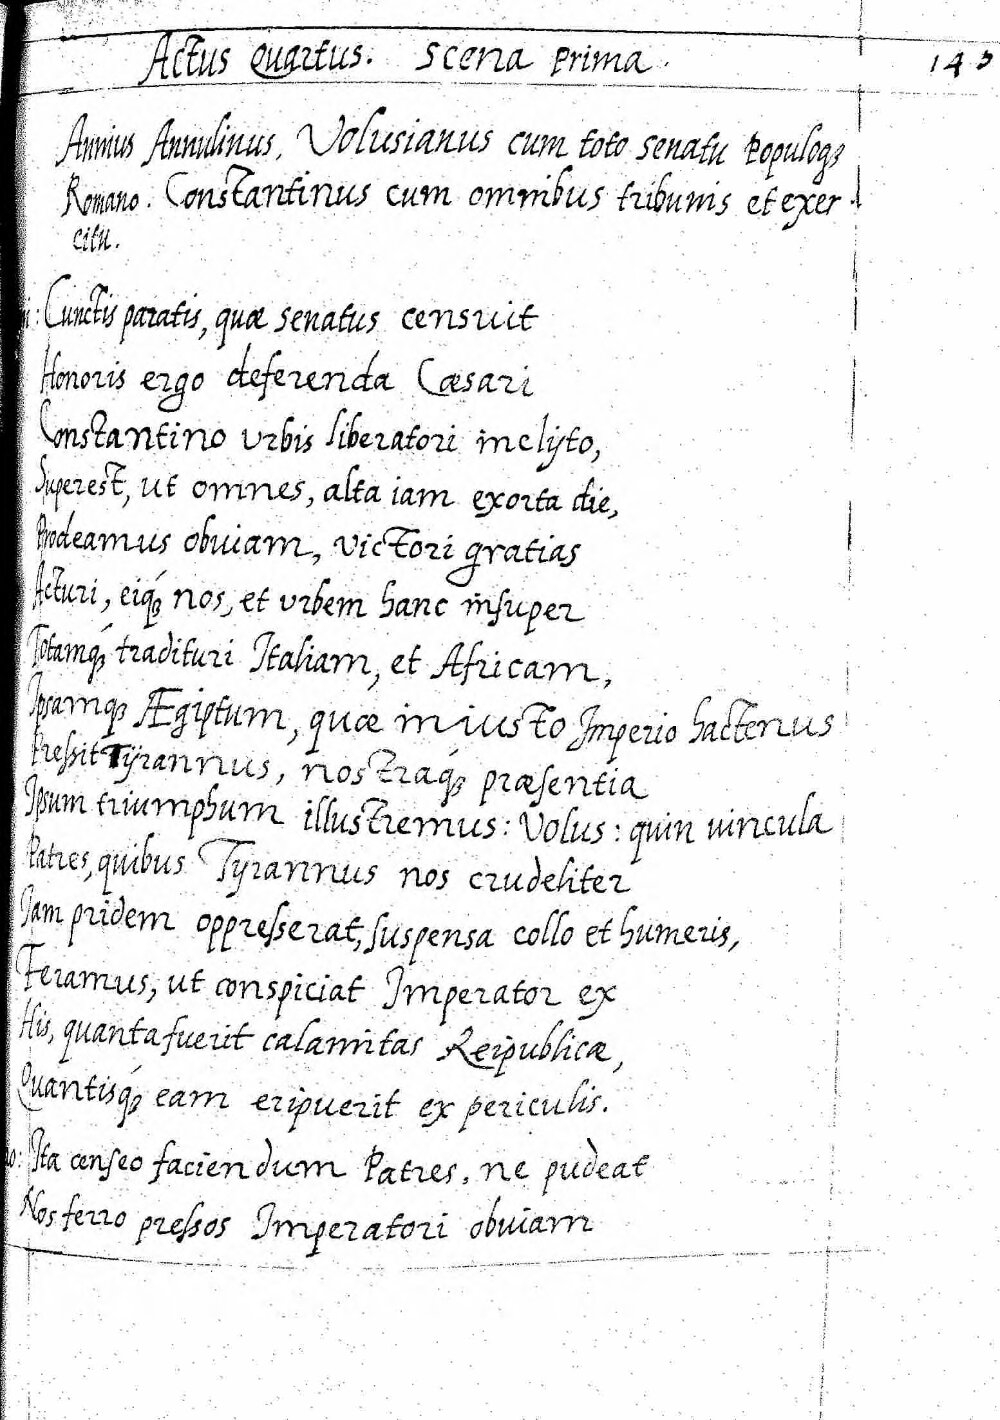 Actus Quartus. Scena Prima.
143
Annius Annulinus, Volusianus cum toto senatu Populoq3
Romano. Constantinus cum omnibus tribunis et exer
citu.
Cunctis paratis, quæ senatus censuit
Honoris ergo deferenda Cæsari
Constantino urbis liberatori inclyto,
Superest, ut omnes, alta iam exorta die,
Prodeamus obuiam, victori gratias
Acturi, eiq3 nos, et urbem hanc insuper
Totamq3 tradituri Italiam, et Africam,
Ipsamq3 Ægiptum, quæ iniusto Imperio hactenus
Pressit Tyrannus, nostraq3 præsentia
Ipsum triumphum illustremus: Volus: quin uincula
Patres, quibus Tyrannus nos crudeliter
Iam pridem oppresserat, suspensa collo et humeris,
Feramus, ut conspiciat Imperator ex
His, quanta fuerit calamitas Reipublicæ,
Quantisq3 eam eripuerit ex periculis.
Ita censeo faciendum Patres, ne pudeat
Nos ferro pressos Imperatori obuiam